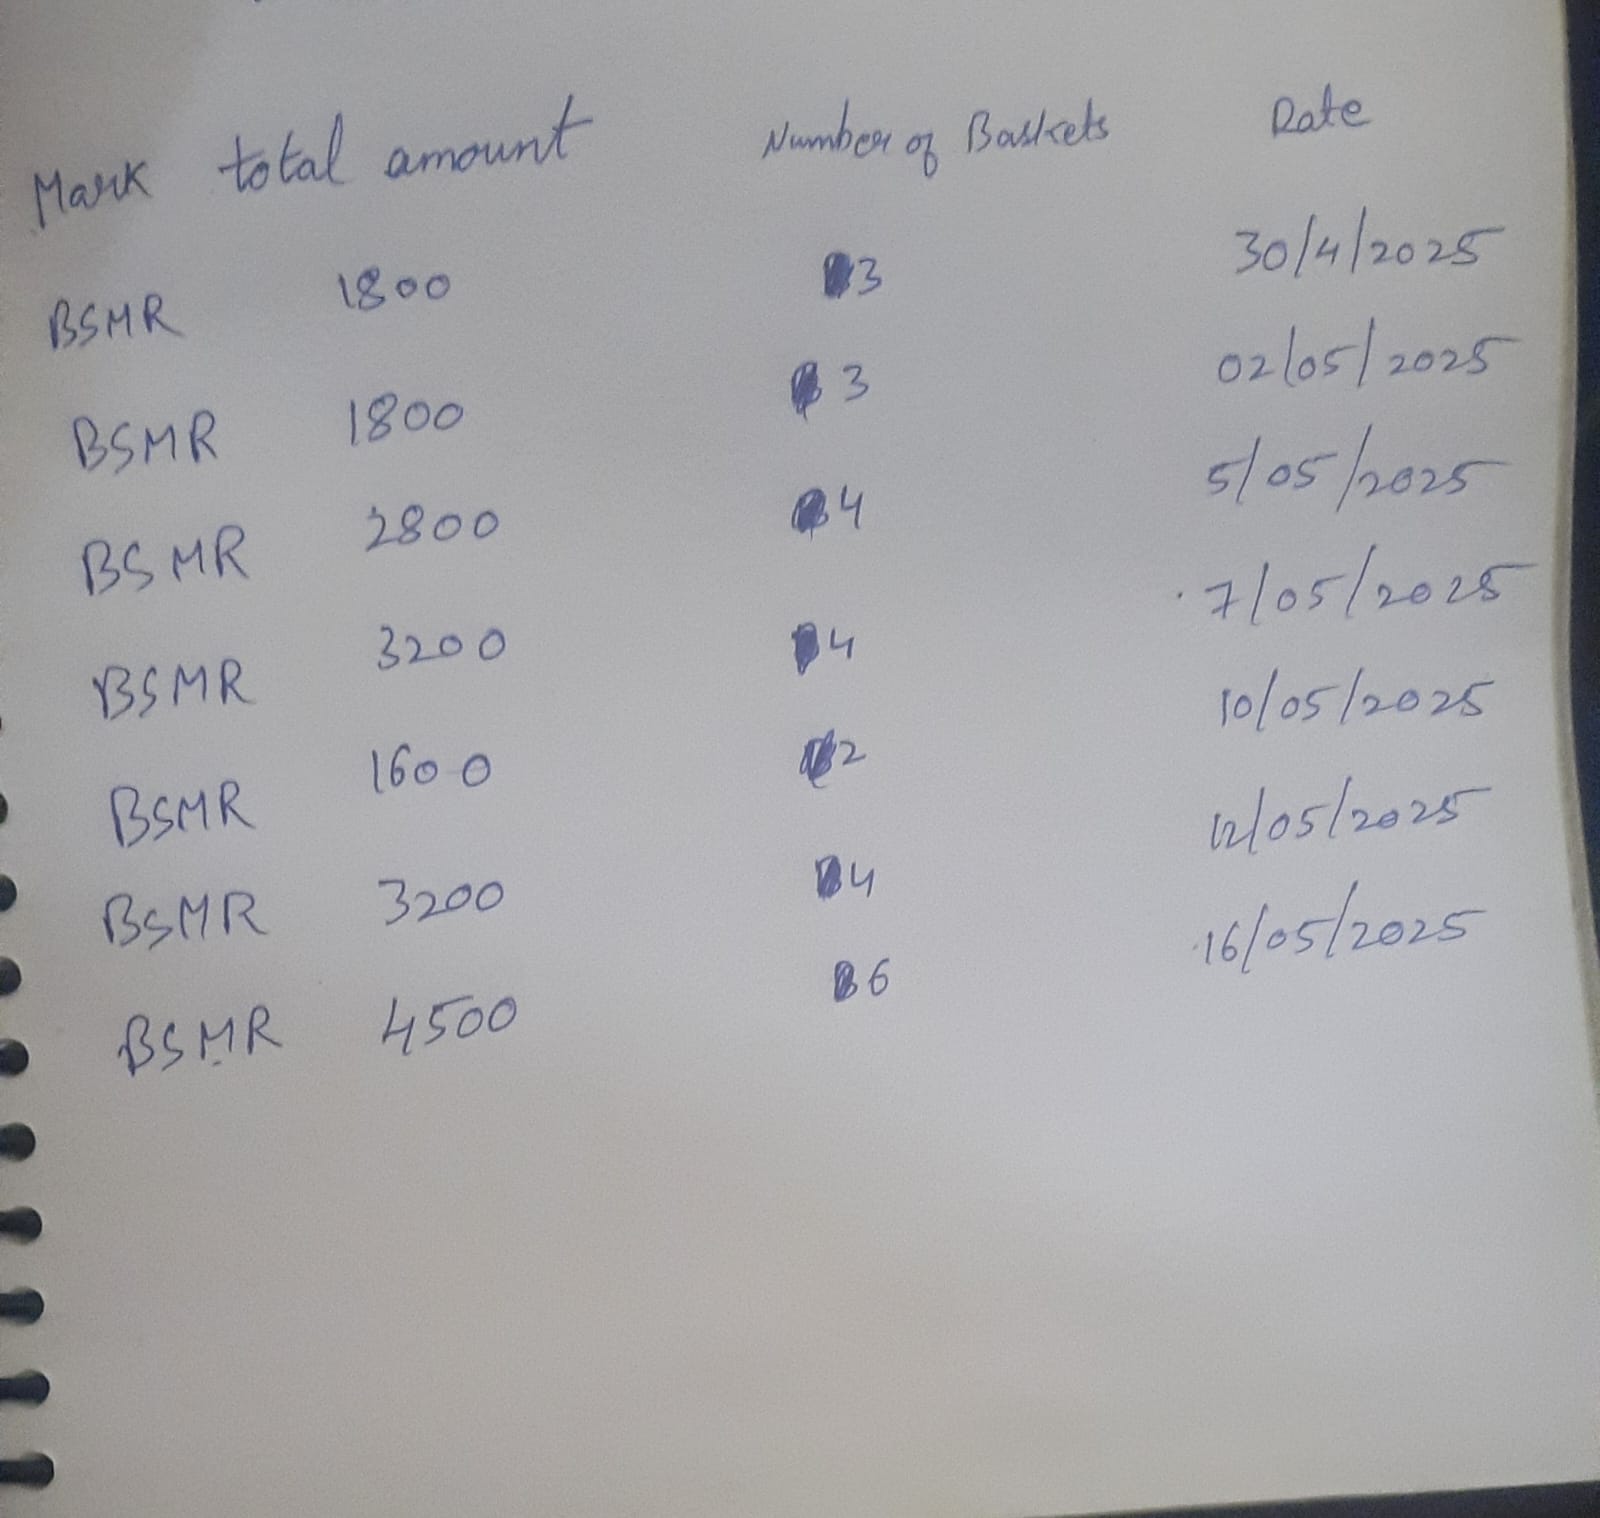 Mark total amount Number of Baskets Date
BSMR 1800 3 30/4/2025
BSMR 1800 3 02/05/2025
BSMR 2800 4 5/05/2025
BSMR 3200 4 7/05/2025
BSMR 1600 2 10/05/2025
BSMR 3200 4 12/05/2025
BSMR 4500 6 16/05/2025